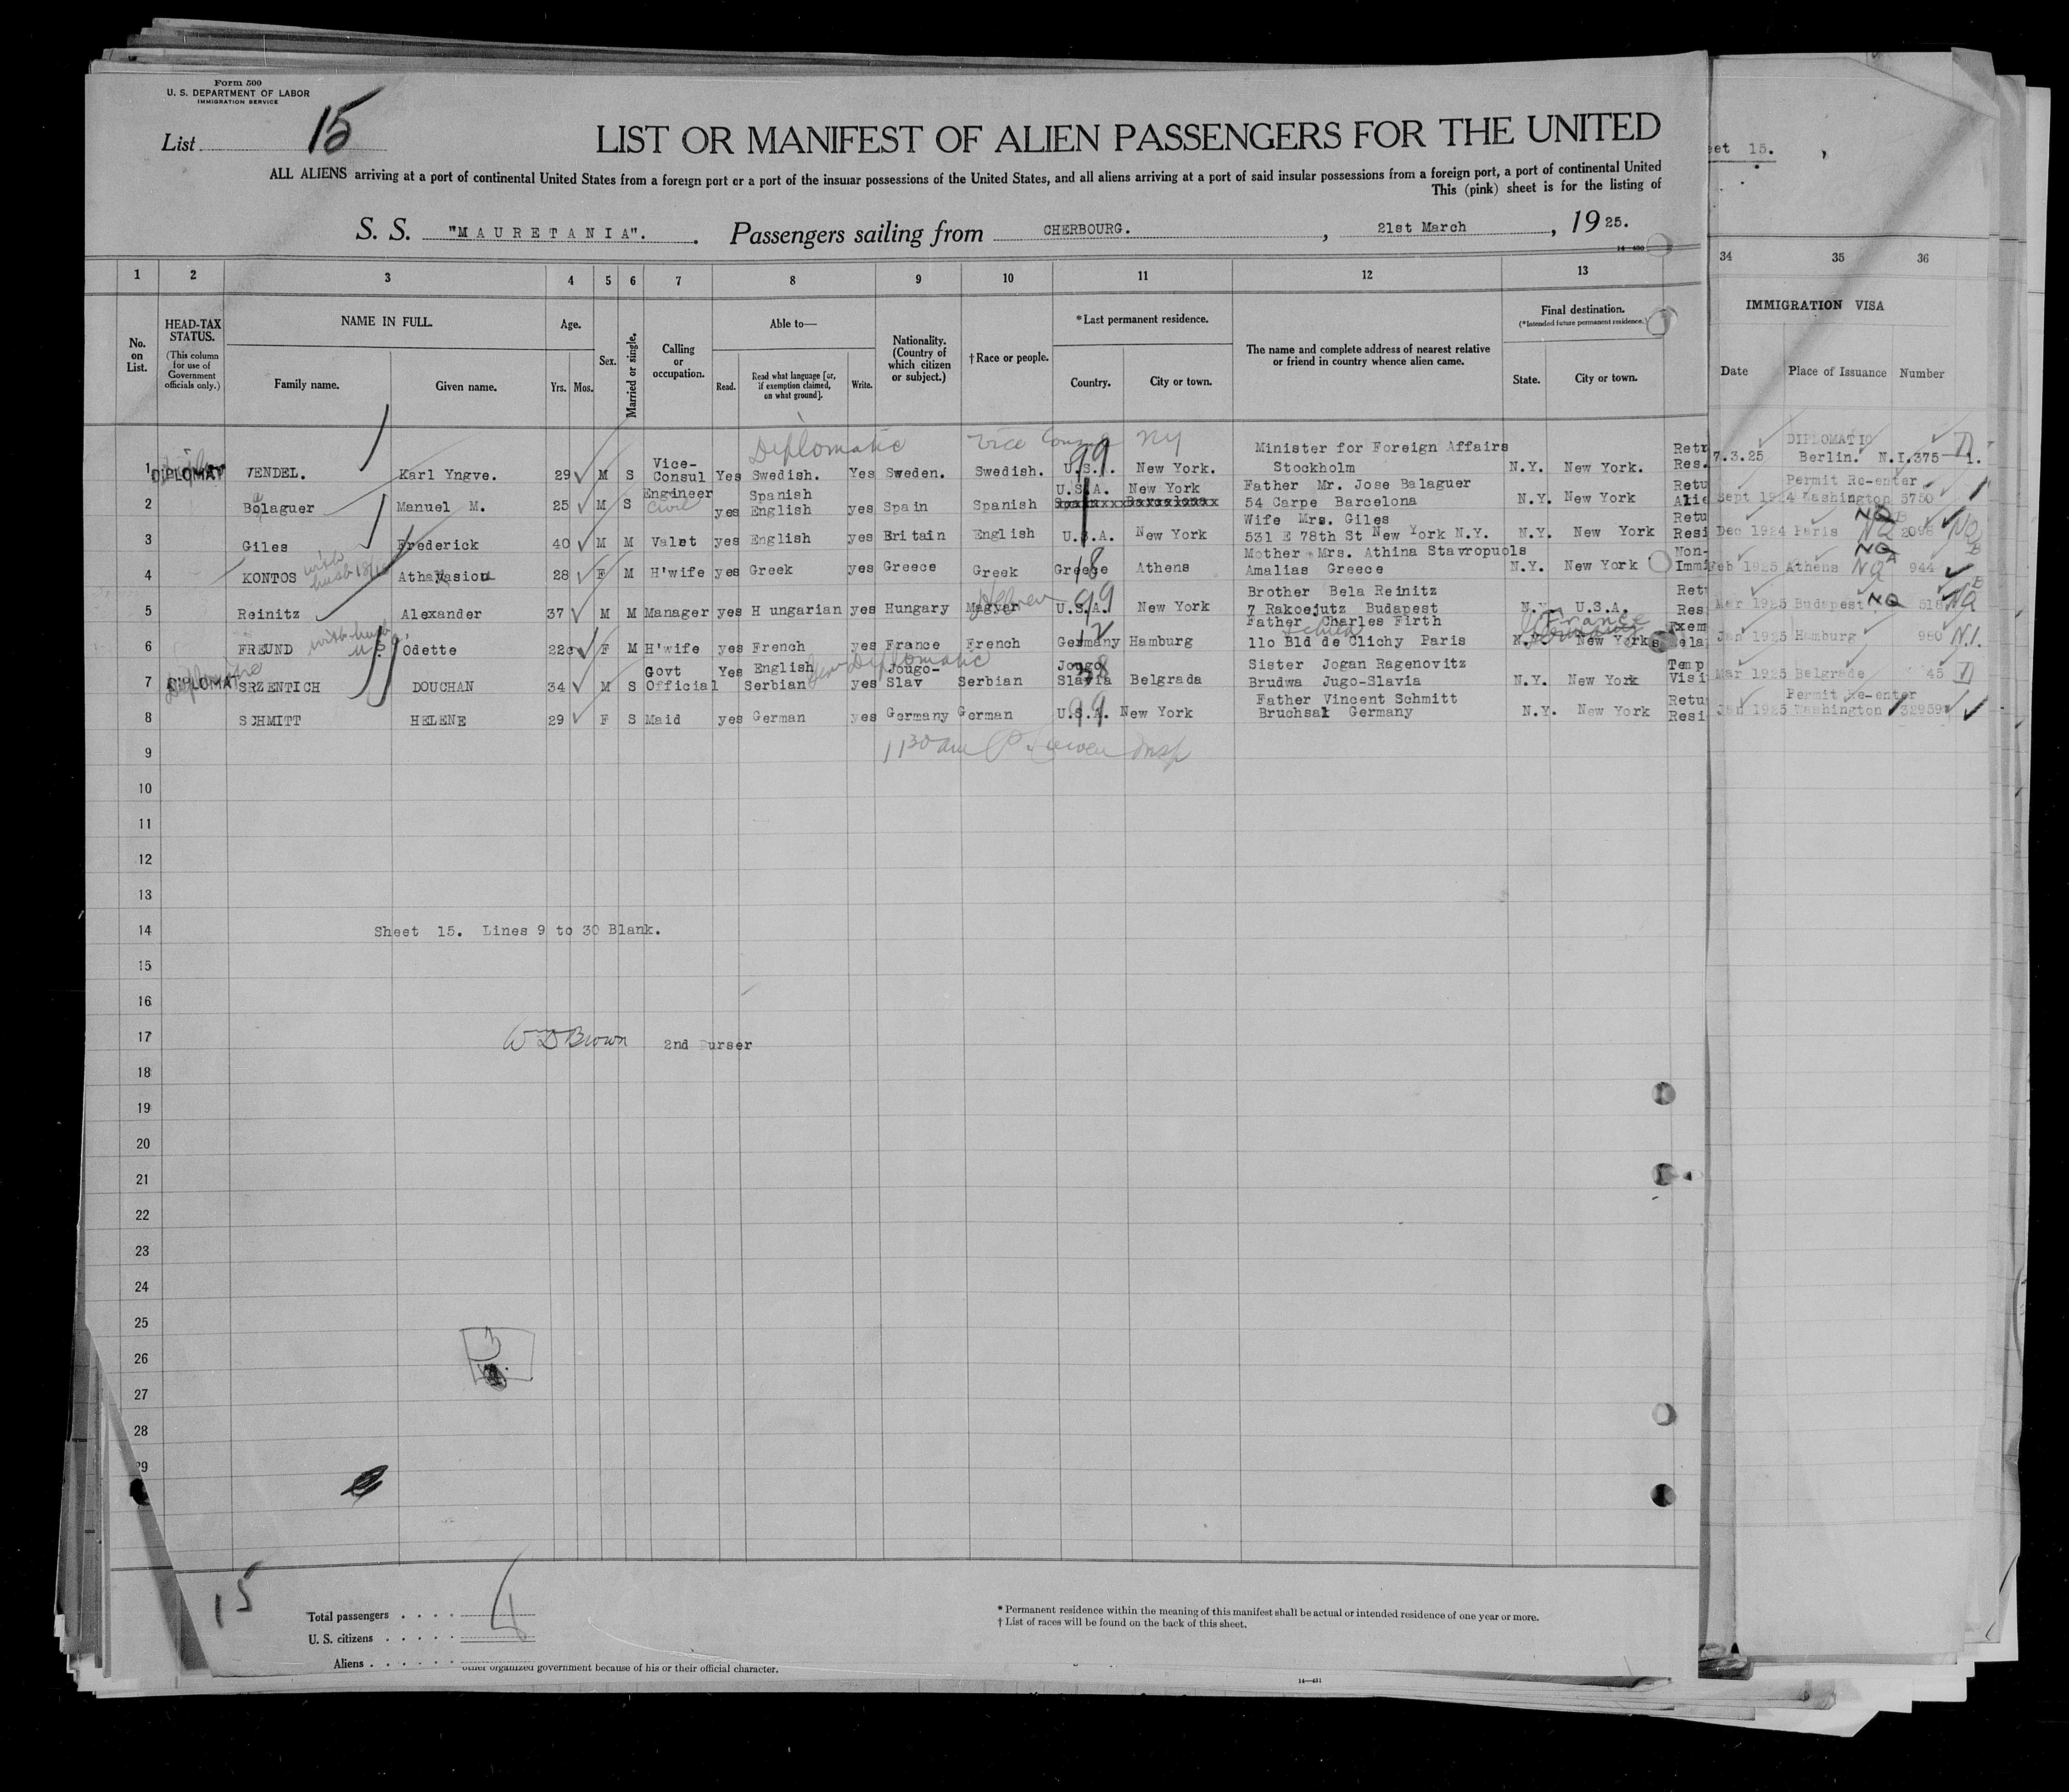 Form 500
U. S. DEPARTMENT OF LABOR
IMMIGRATION SERVICE
List 15
LIST OR MANIFEST OF ALIEN PASSENGERS FOR THE UNITED
ALL ALIENS arriving at a port of continental United States from a foreign port or a port of the insular possessions of the United States, and all aliens arriving at a port of said insular possessions from a foreign port, a port of continental United
This (pink) sheet is for the listing of
et 15.
S. S. "MAURETANIA". Passengers sailing from CHERBOURG. , 21st March , 19 25.
14-430
1 2 3 4 5 6 7 8 9 10 11 12 13 34 35 36
No. on List.
HEAD-TAX STATUS.
(This column for use of Government officials only.)
NAME IN FULL.
Family name. Given name.
Age.
Yrs. Mos.
Sex.
Married or single.
Calling or occupation.
Able to—
Read. Read what language [or, if exemption claimed, on what ground]. Write.
Nationality. (Country of which citizen or subject.)
†Race or people.
*Last permanent residence.
Country. City or town.
The name and complete address of nearest relative or friend in country whence alien came.
Final destination.
(*Intended future permanent residence.)
State. City or town.
IMMIGRATION VISA
Date Place of Issuance Number
Diplomatic Vice Consul NY
1 DIPLOMAT VENDEL. Karl Yngve. 29 M S Vice-Consul Yes Swedish. Yes Sweden. Swedish. U.S.A. New York. Minister for Foreign Affairs Stockholm N.Y. New York. Retr Res. 7.3.25 DIPLOMATIC Berlin. N.I.375
2 Bolaguer Manuel M. 25 M S Engineer Civil yes Spanish English yes Spain Spanish U.S.A. New York Father Mr. Jose Balaguer 54 Carpe Barcelona N.Y. New York Retu Alie Sept 1924 Permit Re-enter Washington 5750
3 Giles Frederick 40 M M Valet yes English yes Britain English U.S.A. New York Wife Mrs. Giles 531 E 78th St New York N.Y. N.Y. New York Retu Resi Dec 1924 Paris NQ 2098 NQ
4 KONTOS Athanasiou 28 F M H'wife yes Greek yes Greece Greek Greece Athens Mother Mrs. Athina Stavropuols Amalias Greece N.Y. New York Non- Immi Feb 1925 Athens NQ 944
5 Reinitz Alexander 37 M M Manager yes Hungarian yes Hungary Magyar Hebrew U.S.A. New York Brother Bela Reinitz 7 Rakoejutz Budapest N.Y. U.S.A. Retu Resi Mar 1925 Budapest NQ 518 NQ
6 FREUND Odette 22 F M H'wife yes French yes France French Germany Hamburg Father Charles Firth 110 Bld de Clichy Paris N.Y. New York France Exem Rela Jan 1925 Hamburg 980 N.I.
7 DIPLOMAT SRZENTICH DOUCHAN 34 M S Govt Official Yes English Serbian yes Jougo-Slav Serbian Jougo Slavia Belgrada Sister Jogan Ragenovitz Brudwa Jugo-Slavia N.Y. New York Temp Visi Mar 1925 Belgrade 45
Diplomatic
8 SCHMITT HELENE 29 F S Maid yes German yes Germany German U.S.A. New York Father Vincent Schmitt Bruchsal Germany N.Y. New York Retu Resi Jan 1925 Permit Re-enter Washington 32959
9 1130 am
10
11
12
13
14 Sheet 15. Lines 9 to 30 Blank.
15
16
17 Wm D Brown 2nd Purser
18
19
20
21
22
23
24
25
26
27
28
29
15
Total passengers
U. S. citizens
Aliens
* Permanent residence within the meaning of this manifest shall be actual or intended residence of one year or more.
† List of races will be found on the back of this sheet.
other organized government because of his or their official character.
14-431